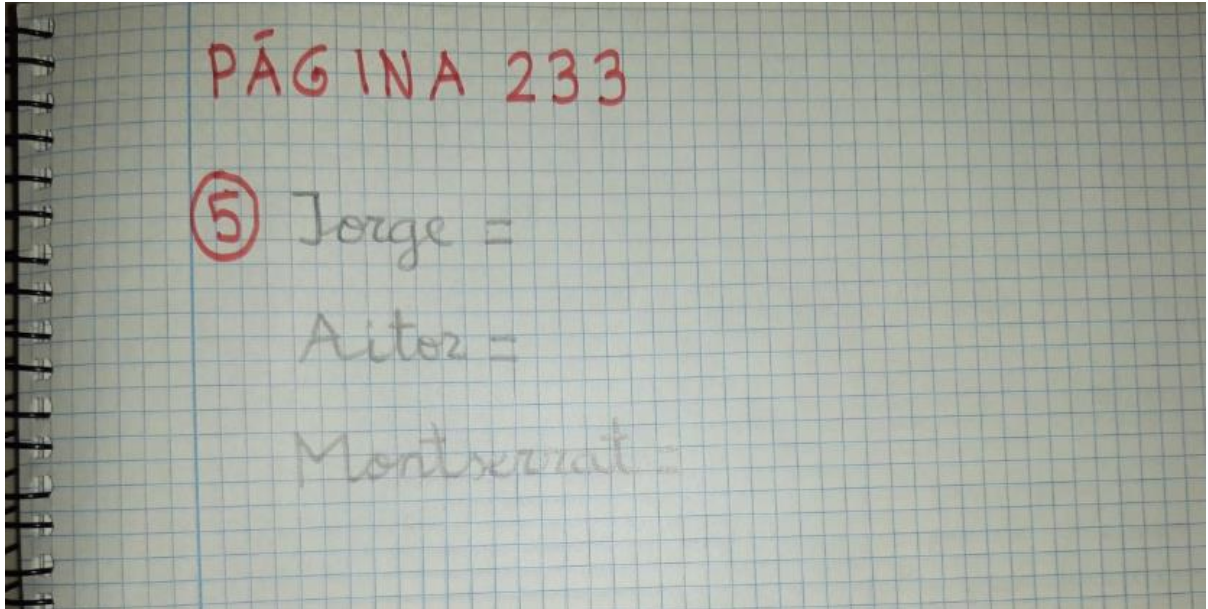 PÁGINA 233
5 Jorge =
Aitor =
Montserrat =